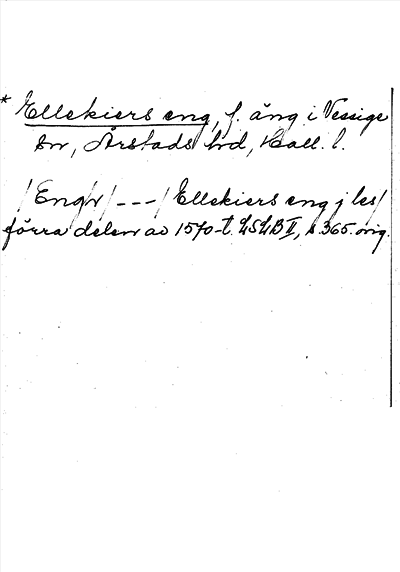 * Ellekiers eng, f. äng i Vessige
sn, Årstads hd, Hall. l.
/Engr/ --- /Ellekiers eng j les/
förra delen av 1570-t. LSLB II, s. 365. orig.